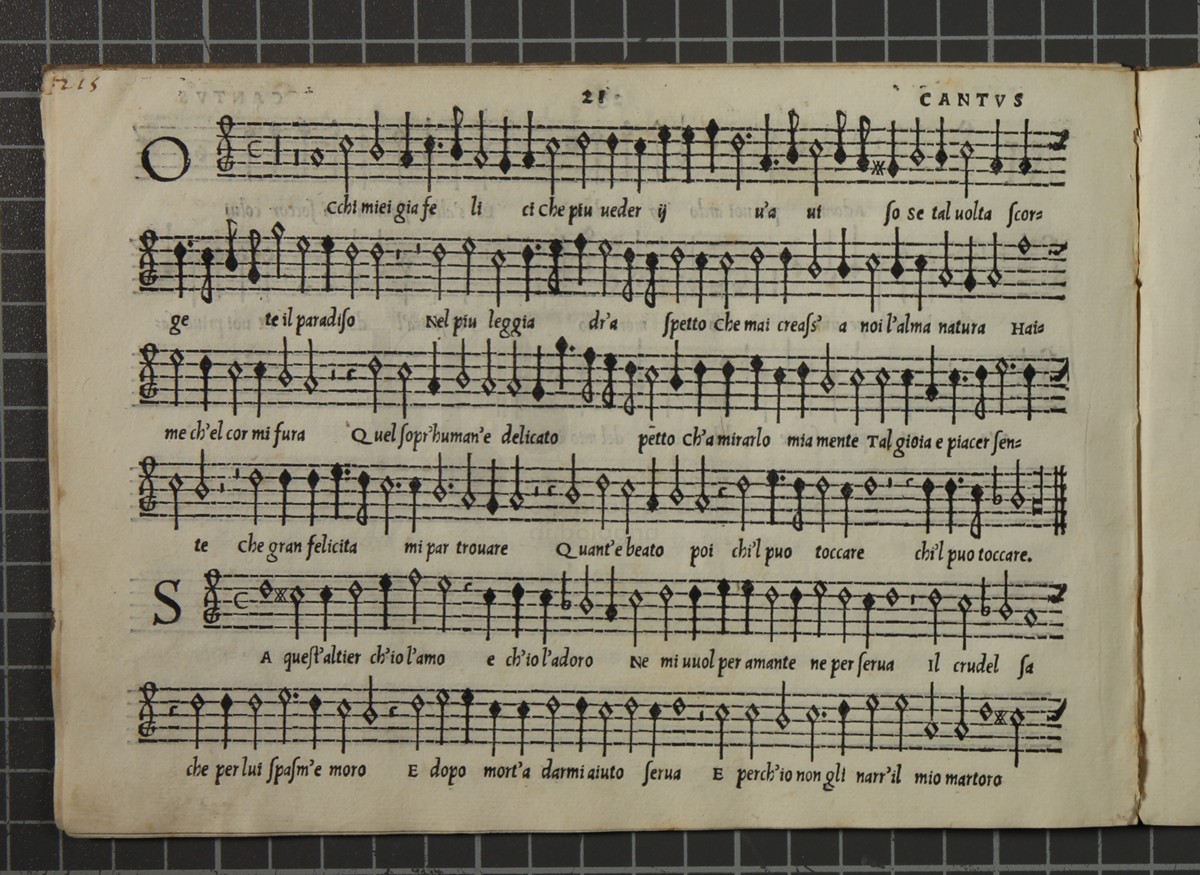 7215
21 CANTVS
O
Cchi miei gia fe li ci Che piu ueder ij u'a ui ſo se tal uolta ſcor=
ge te il paradiſo Nel piu leggia dr'a ſpetto Che mai creaſs' a noi l'alma natura Hai=
me ch'el cor mi fura Quel ſopr'human'e delicato petto Ch'a mirarlo mia mente Tal gioia e piacer ſen=
te Che gran felicita mi par trouare Quant'e beato poi chi'l puo toccare chi'l puo toccare.
S
A queſt'altier ch'io l'amo e ch'io l'adoro Ne mi uuol per amante ne per ſerua Il crudel ſa
che per lui ſpaſm'e moro E dopo mort'a darmi aiuto ſerua E perch'io non gli narr'il mio martoro